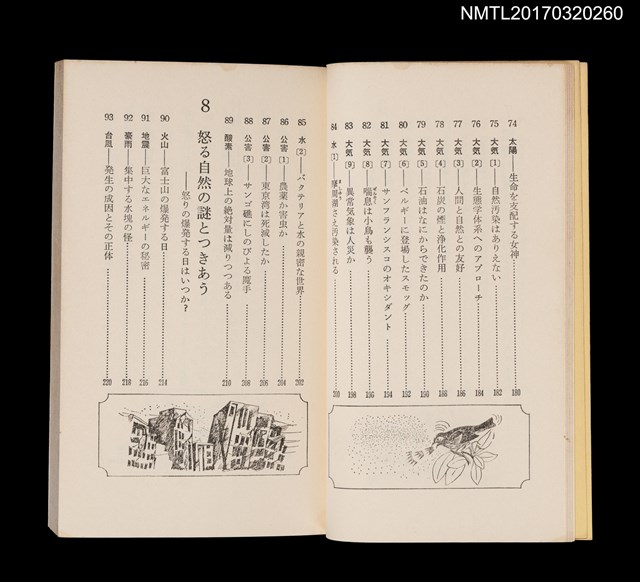 NMTL20170320260
74 太陽——生命を支配する女神 180
75 大気〔1〕 自然汚染はありえない 182
76 大気〔2〕 生態学体系へのアプローチ 184
77 大気〔3〕 人間と自然との友好 186
78 大気〔4〕 石炭の煙と浄化作用 188
79 大気〔5〕 石油はなにからできたのか 190
80 大気〔6〕 ベルギーに登場したスモッグ 192
81 大気〔7〕 サンフランシスコのオキシダント 194
82 大気〔8〕 喘息は小鳥も襲う 196
83 大気〔9〕 異常気象は人災か 198
84 水〔1〕 さえ汚染される 200
85 水〔2〕 バクテリアと水の親密な世界 202
86 公害〔1〕 農薬か害虫か 204
87 公害〔2〕 東京湾は死滅したか 206
88 公害〔3〕 サンゴ礁にしのびよる魔手 208
89 酸素——地球上の絶対量は減りつつある 210
8 怒る自然の謎とつきあう
——怒りの爆発する日はいつか?
90 火山——富士山の爆発する日 214
91 地震——巨大なエネルギーの秘密 216
92 豪雨——集中する水塊の怪 218
93 台風——発生の成因とその正体 220